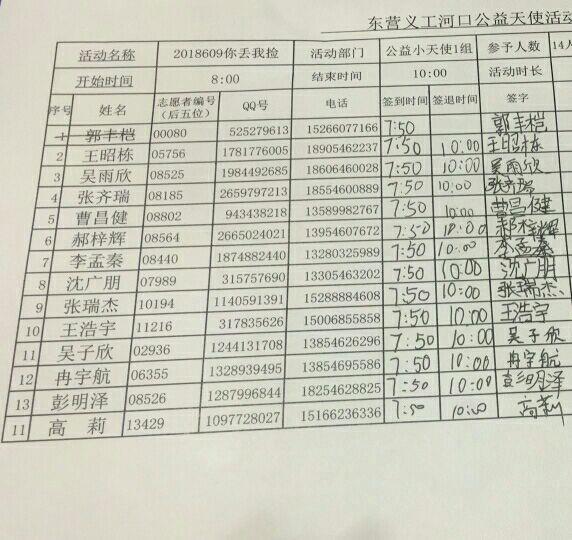 东营义工河口公益天使活动
活动名称 2018609你丢我捡 活动部门 公益小天使1组 参予人数 14人
开始时间 8:00 结束时间 10:00 活动时长
序号 姓名 志愿者编号（后五位） QQ号 电话 签到时间 签退时间 签字
1 郭丰桤 00080 525279613 15266077166 7:50 郭丰桤
2 王昭栋 05756 1781776005 18905462237 7:50 10:00 王昭栋
3 吴雨欣 08525 1984492685 18606460028 7:50 10:00 吴雨欣
4 张齐瑞 08185 2659797213 18554600889 7:50 10:00 张齐瑞
5 曹昌健 08802 943438218 13589982767 7:50 10:00 曹昌健
6 郝梓辉 08564 2665024021 13954607672 7:50 10:00 郝梓辉
7 李孟秦 08440 1874882440 13280325989 7:50 10:00 李孟秦
8 沈广朋 07989 315757690 13305463202 7:50 10:00 沈广朋
9 张瑞杰 10194 1140591391 15288884608 7:50 10:00 张瑞杰
10 王浩宇 11216 317835626 15006855858 7:50 10:00 王浩宇
11 吴子欣 02936 1244131708 13854626296 7:50 10:00 吴子欣
12 冉宇航 06355 1328939495 13854695586 7:50 10:00 冉宇航
13 彭明泽 08526 1287996844 18254628825 7:50 10:00 彭明泽
11 高莉 13429 1097728027 15166236336 7:50 10:00 高莉